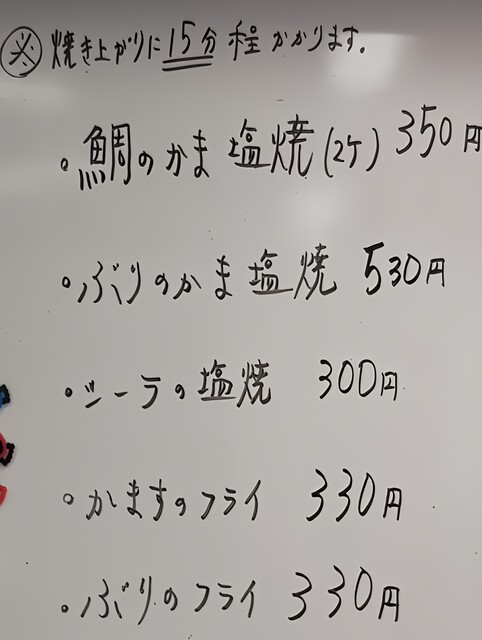 ※焼き上がりに15分程かかります。
・鯛のかま塩焼(2ケ) 350円
・ぶりのかま塩焼 530円
・シーラの塩焼 300円
・かますのフライ 330円
・ぶりのフライ 330円